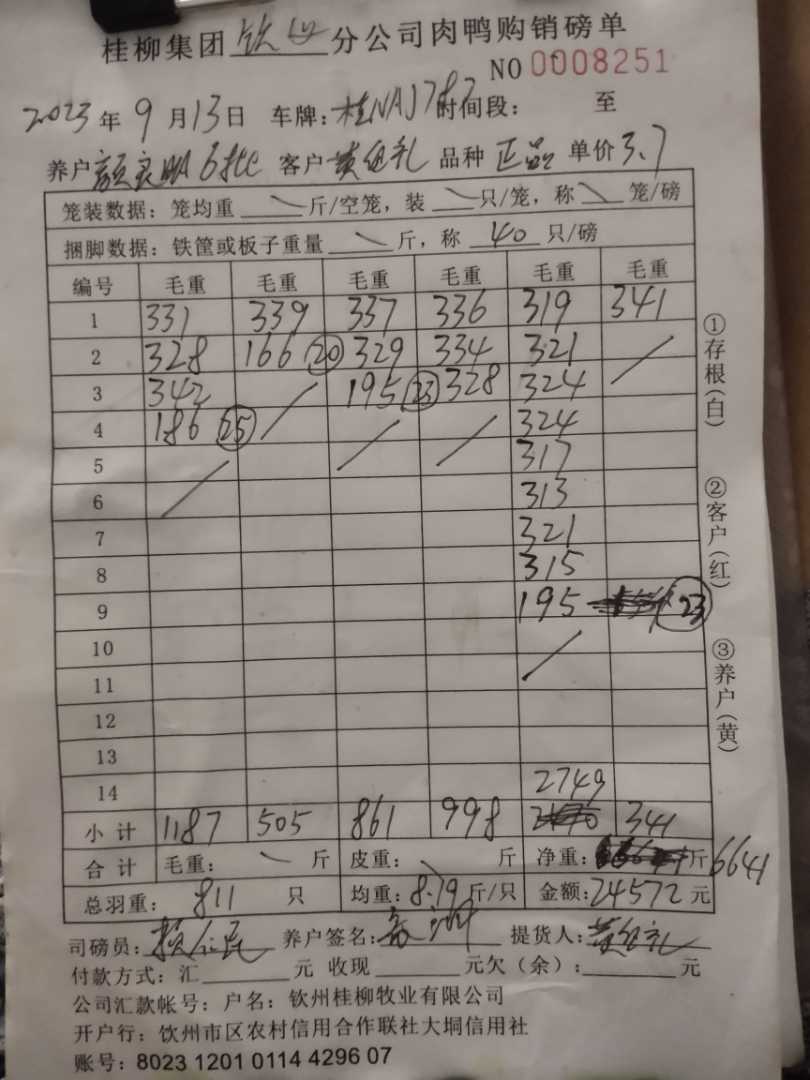 桂柳集团 钦州 分公司肉鸭购销磅单
NO 0008251
2023年9月13日 车牌:桂NAJ787 时间段: 至
养户 6批 客户 黄 礼 品种 正品 单价 3.7
笼装数据:笼均重 \ 斤/空笼,装 \ 只/笼,称 \ 笼/磅
捆脚数据:铁筐或板子重量 \ 斤,称 40 只/磅
编号 毛重 毛重 毛重 毛重 毛重 毛重
1 331 339 337 336 319 341
2 328 166 (20) 329 334 321 /
3 342 / 195 (23) 328 324
4 186 (25) / / 324
5 / 317
6 313
7 321
8 315
9 195 (23)
10 /
11
12
13
14 2749
小计 1187 505 861 998 341
合计 毛重: \ 斤 皮重: \ 斤 净重: 斤 6641
总羽重: 811 只 均重: 8.19 斤/只 金额: 24572 元
司磅员: 养户签名: 提货人: 黄 礼
付款方式:汇 元 收现 元欠(余): 元
公司汇款帐号:户名:钦州桂柳牧业有限公司
开户行:饮州市区农村信用合作联社大垌信用社
账号:8023 1201 0114 4296 07
①存根(白)
②客户(红)
③养户(黄)